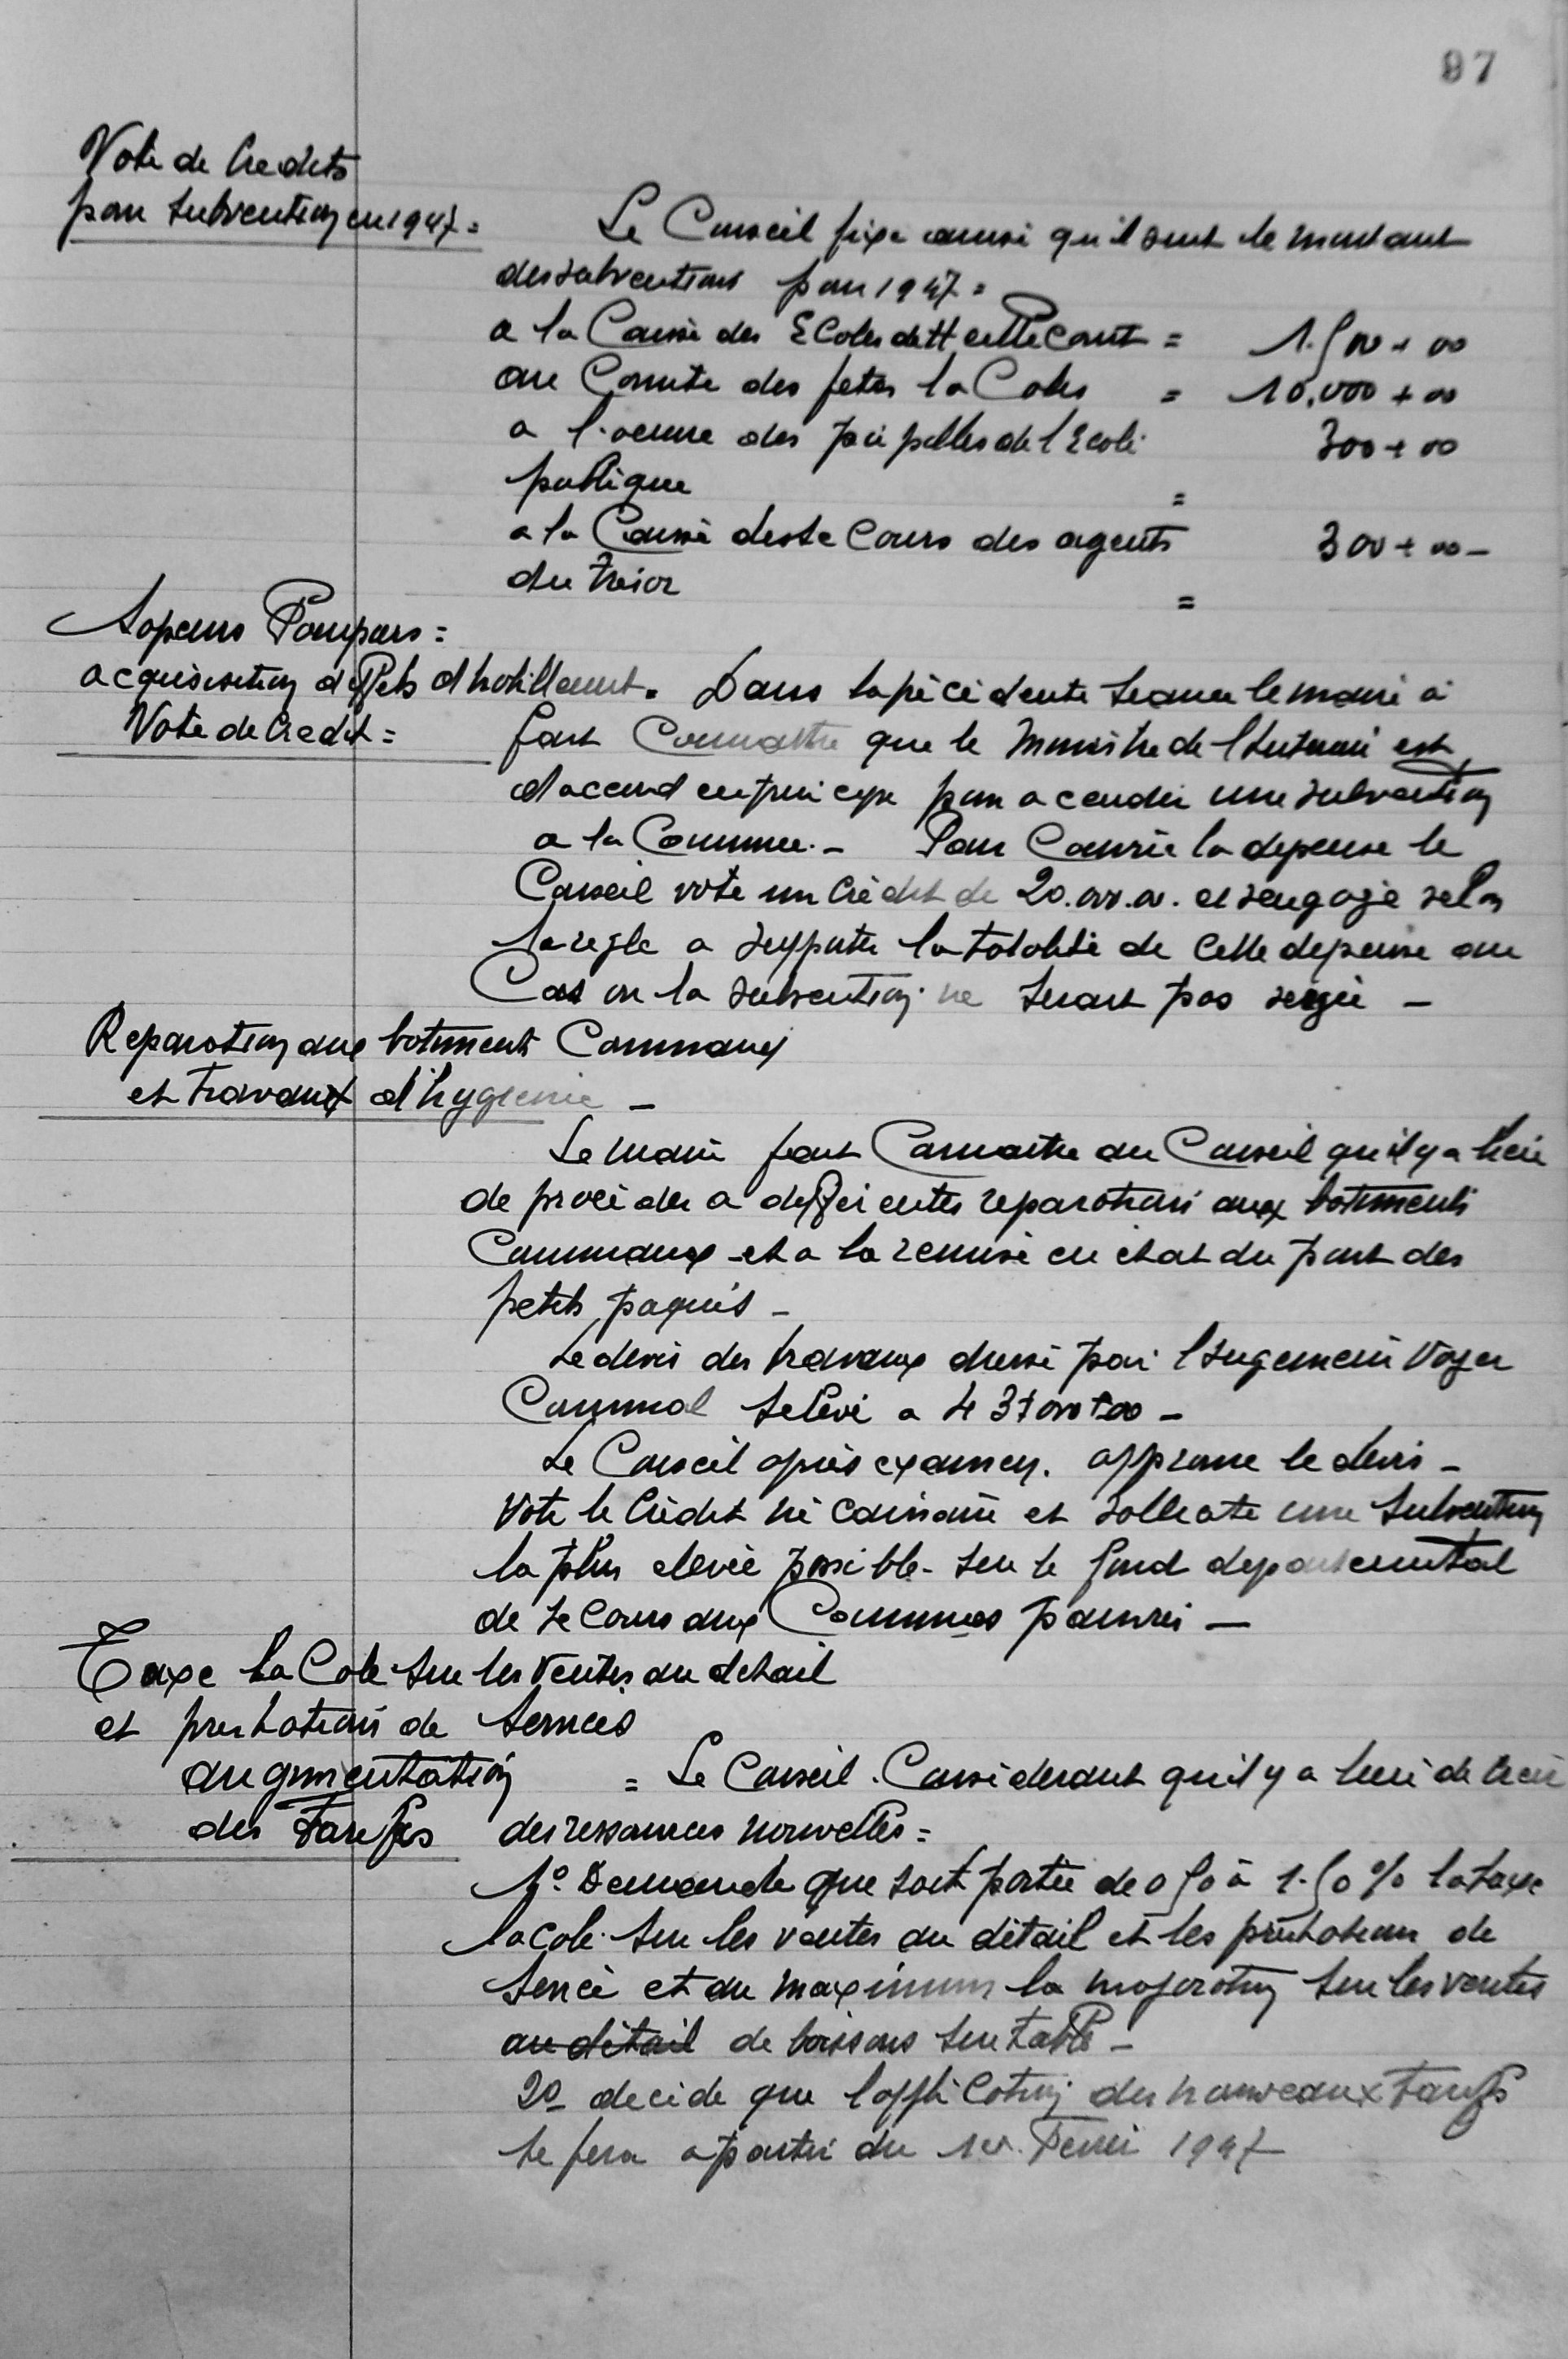 97
Vote de Credits
pour Subvention en 1947 =
Le Conseil fixe ainsi qu'il suit le montant
des subventions pour 1947 =
a la Caisse des Ecoles de Heillecourt = 1.500 + 00
au Comite des fetes locales = 10.000 + 00
a l'oeuvre des pupilles de l'Ecole 300 + 00
publique =
a la Caisse de secours des agents 300 + 00 -
du Tresor =
Sapeurs Pompiers =
acquisition d'effets d'habillement.
Vote de Credit =
Dans la précédente séance le maire a
fait Connaitre que le Ministre de l'Interieur est
d'accord en principe pour accorder une subvention
a la Commune. - Pour Couvrir la depense le
Conseil vote un Crédit de 20.000.00. et s'engage selon
la regle a supporter la totalité de cette depense au
Cas ou la subvention ne serait pas versée -
Reparation aux batiments Communaux
et travaux d'hygiene -
Le maire fait Connaitre au Conseil qu'il y a lieu
de proceder a differentes reparations aux batiments
Communaux et a la remise en etat du pont des
petits paquis -
Le devis des travaux dressé par l'Ingenieur Voyer
Communal s'elève a 437000+00 -
Le Conseil après examen. approuve le devis -
Vote le Crédit nécessaire et sollicite une Subvention
la plus elevée possible - sur le fond departemental
de secours aux Communes pauvres -
Taxe locale sur les ventes au detail
et prestations de Services
augmentation
des Tariffes
= Le Conseil. Considerant qu'il y a lieu de Creer
des ressources nouvelles =
1°. Demande que soit portée de 0 50 à 1.50 % la taxe
locale sur les ventes au détail et les prestations de
Service et au maximum la majoration sur les ventes
au détail de boissons sur table -
2° decide que l'application des nouveaux tariffs
se fera a partir du 1er. Fevrier 1947